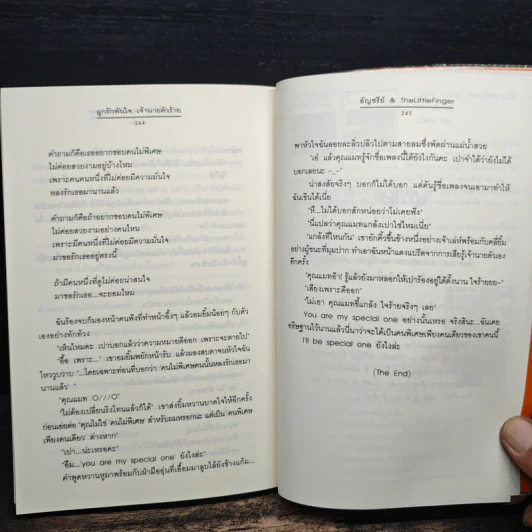 ผูกรักพันใจ เจ้านายตัวร้าย
244
คำถามก็คือเธออยากชอบคนไม่พิเศษ
ไม่ค่อยสวยงามอยู่บ้างไหม
เพราะคนคนหนึ่งที่ไม่ค่อยมีความมั่นใจ
หลงรักเธอมานานแล้ว
คำถามก็คือถ้าอยากชอบคนไม่พิเศษ
ไม่ค่อยสวยงามอย่างคนไหน
เพราะมีคนหนึ่งที่ไม่ค่อยมีความมั่นใจ
มาชอบเธออยู่ตรงนี้
ถ้ามีคนหนึ่งที่ดูไม่ค่อยน่าสนใจ
มาชอบเธอ...จะยอมไหม
ฉันร้องจบก็มองหน้าคนฟังที่ทำหน้าอึ้งๆ แล้วอมยิ้มน้อยๆ กับตัว
เองอย่างพักท้วง
"เห็นไหมคะ เปาบอกแล้วว่าความหมายดีออก เพราะจะตายไป"
"อื้อ เพราะ..." เขาอมยิ้มพยักหน้ารับ แล้วมองสบตาจนหัวใจฉัน
ไหววูบวาบ "...โดยเฉพาะท่อนที่บอกว่า 'คนไม่พิเศษคนนั้นหลงรักเธอมา
นานแล้ว' "
"คุณแมท O///O"
"ไม่ต้องเปลี่ยนริงโทนแล้วก็ได้" เขาส่งยิ้มหวานบาดใจให้อีกครั้ง
ก่อนเอ่ยต่อ "คุณไม่ใช่ 'คนไม่พิเศษ' สำหรับผมหรอกนะ แต่เป็น 'คนพิเศษ
เพียงคนเดียว' ต่างหาก"
"เปา...น่ะเหรอคะ"
"อืม...'you are my special one' ยังไงล่ะ"
คำพูดหวานหูมาพร้อมกับฝ่ามืออุ่นที่เอื้อมมาลูบไล้ยังข้างแก้ม...
อัญชรีย์ & TheLittleFinger
245
พาหัวใจฉันลอยละลิ่วปลิวไปตามสายลมซึ่งพัดผ่านแม่น้ำสวย
"เอ๋ แล้วคุณแมทรู้จักชื่อเพลงนี้ได้ยังไงกันคะ เปาจำได้ว่ายังไม่ได้
บอกเลยนะ -_-"
น่าสงสัยจริงๆ บอกก็ไม่ได้บอก แต่ดันรู้ชื่อเพลงจนเอามาทำให้
ฉันเขินได้เนี่ย
"หึ...ไม่ได้บอกสักหน่อยว่าไม่เคยฟัง"
"นี่แปลว่าคุณแมทแกล้งเปาใช่ไหมเนี่ย"
"แกล้งที่ไหนกัน" เขายักคิ้วขึ้นข้างหนึ่งอย่างเจ้าเล่ห์พร้อมกับคลี่ยิ้ม
อย่างผู้ชนะที่มุมปาก ทำเอาฉันหน้าแดงแปร๊ดจากการเสียรู้เจ้านายตัวเอง
อีกครั้ง
"คุณแมทอ้ะ! รู้แล้วยังมาหลอกให้เปาร้องอยู่ได้ตั้งนาน ใจร้ายยย~"
"เสียงเพราะดีออก"
"ไม่เอา คุณแมทขี้แกล้ง ใจร้ายจริงๆ เลย"
You are my special one อย่างนั้นเหรอ จริงสินะ...ฉันเคย
อธิษฐานไว้นานแล้วนี่นาว่าจะได้เป็นคนพิเศษเพียงคนเดียวของเขาคนนี้
I'll be special one ยังไงล่ะ
(The End)